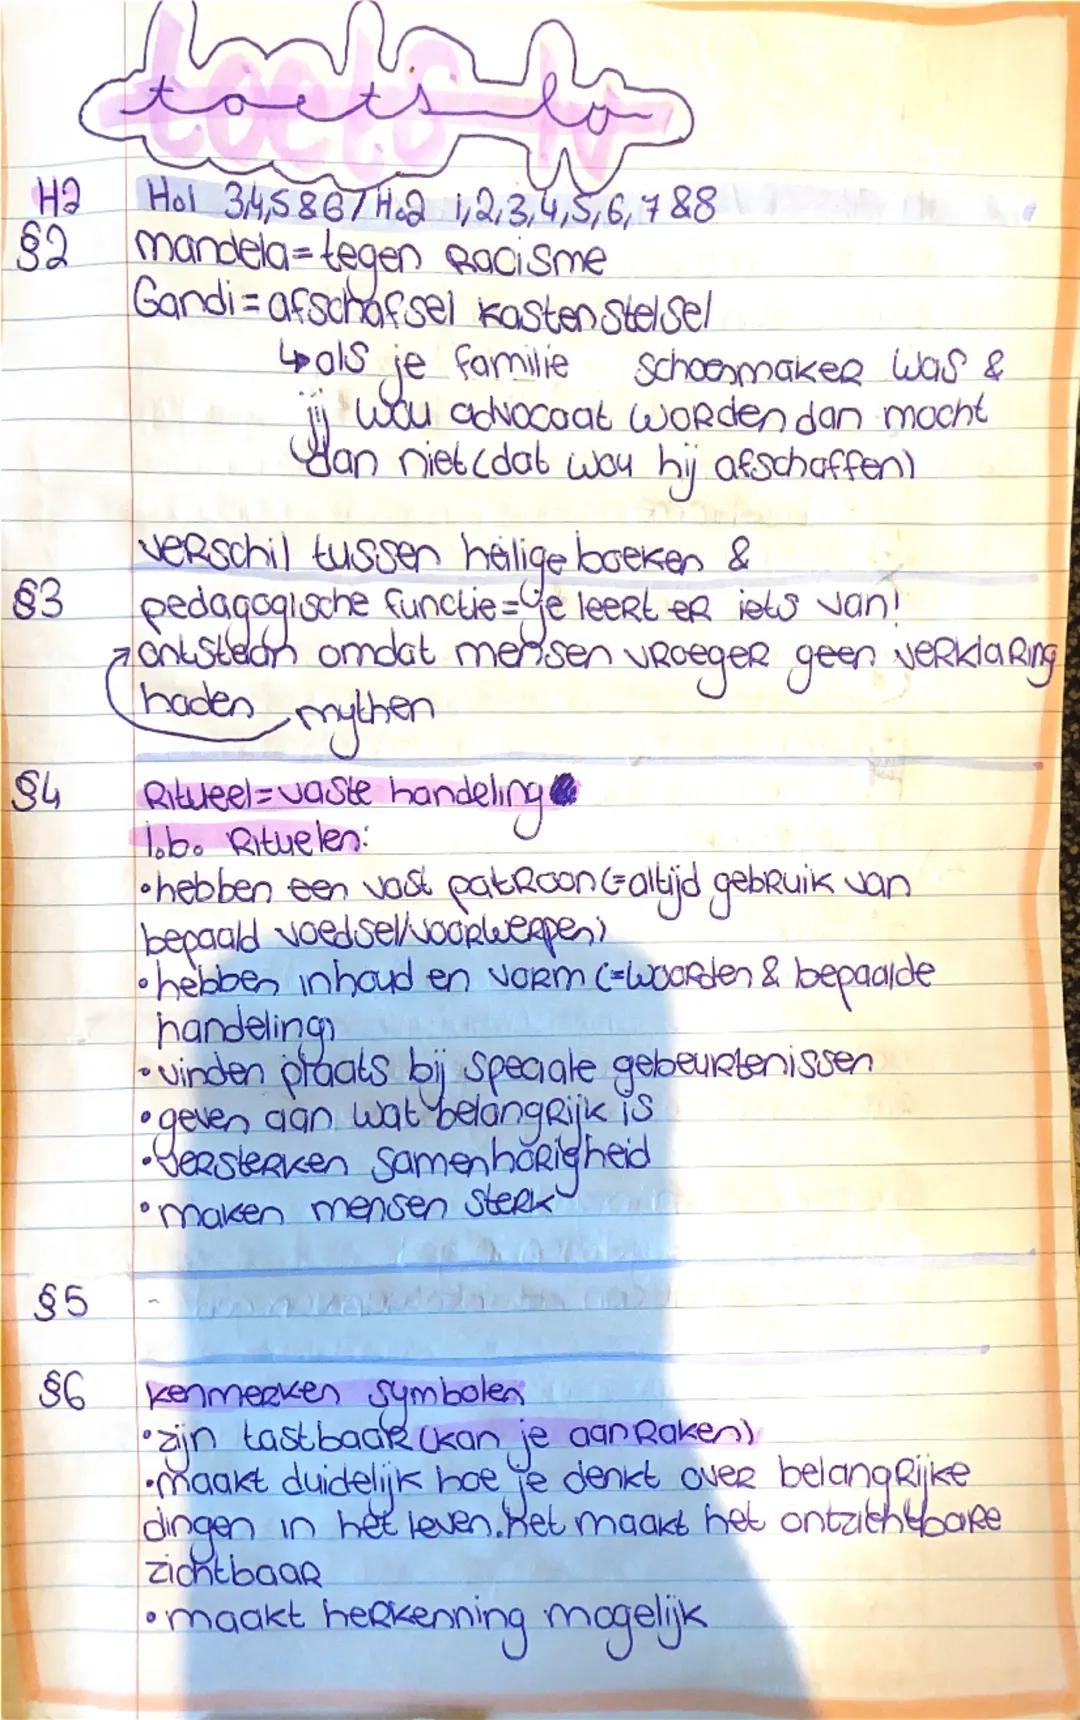 toets lo
H2 Ho1 3,4,5 & 6 / Ho2 1,2,3,4,5,6,7 & 8
§2 mandela = tegen Racisme
Gandi = afschafsel kastenstelsel
↳ als je familie schoonmaker was &
jij wou advocaat worden dan mocht
dan niet (dat wou hij afschaffen)
verschil tussen heilige boeken &
§3 pedagogische functie = je leert er iets van!
ontstaan omdat mensen vroeger geen verklaring
haden mythen
§4 Ritueel = vaste handeling
1.b. Rituelen:
• hebben een vast patroon (= altijd gebruik van
bepaald voedsel/voorwerpen)
• hebben inhoud en vorm (= woorden & bepaalde
handeling)
• vinden plaats bij speciale gebeurtenissen
• geven aan wat belangrijk is
• versterken samenhörigheid
• maken mensen sterk
§5 -
§6 kenmerken symbolen
• zijn tastbaar (kan je aanraken)
• maakt duidelijk hoe je denkt over belangrijke
dingen in het leven. het maakt het ontzichtbare
zichtbaar
• maakt herkenning mogelijk